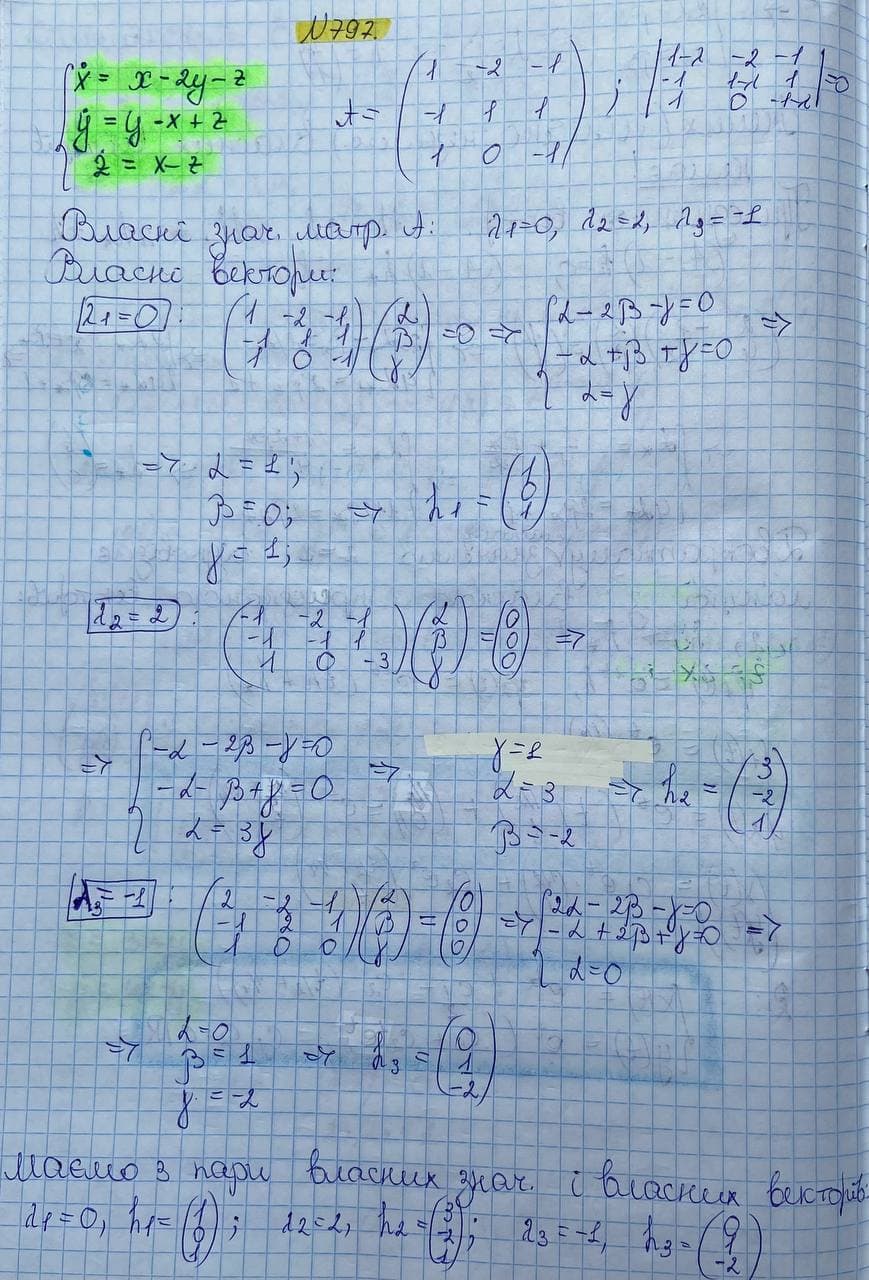 N797.
{ẋ = x - 2y - z
ẏ = y - x + z
ż = x - z
A = (1 -2 -1
-1 1 1
1 0 -1) ; |1-λ -2 -1
-1 1-λ 1
1 0 -1-λ| = 0
Власні знач. матр. A: λ1=0, λ2=2, λ3=-1
Власні вектори:
λ1=0 : (1 -2 -1
-1 1 1
1 0 -1) (α
β
γ) = 0 => {α - 2β - γ = 0
-α + β + γ = 0
α = γ =>
=> α = 1;
β = 0;
γ = 1; => h1 = (1
0
1)
λ2=2 : (-1 -2 -1
-1 -1 1
1 0 -3) (α
β
γ) = (0
0
0) =>
=> {-α - 2β - γ = 0
-α - β + γ = 0
α = 3γ =>
γ = 1
α = 3
β = -2 => h2 = (3
-2
1)
λ3=-1 : (2 -2 -1
-1 2 1
1 0 0) (α
β
γ) = (0
0
0) => {2α - 2β - γ = 0
-α + 2β + γ = 0
α = 0 =>
=> α = 0
β = 1
γ = -2 => h3 = (0
1
-2)
Маємо 3 пари власних знач. і власних векторів:
λ1=0, h1 = (1
0
1) ; λ2=2, h2 = (3
-2
1) ; λ3=-1, h3 = (0
1
-2)